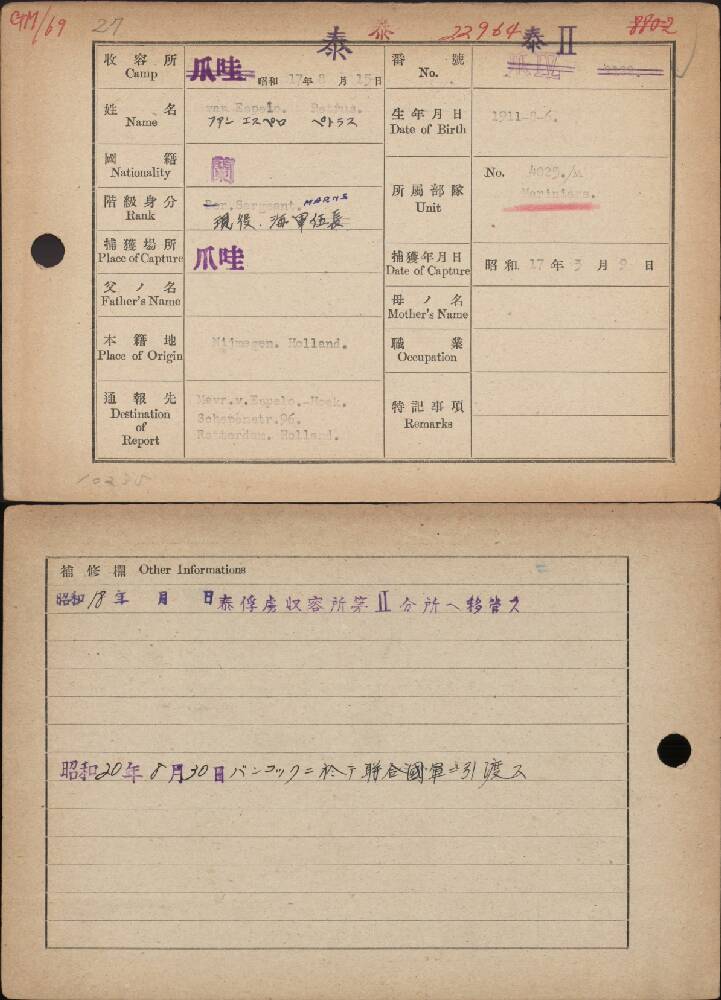 GM/69 27 泰 泰 22964 泰II 8802
收容所 Camp 爪哇 昭和17年8月15日 番號 No.
姓名 Name van Espelo. Petrus.
フアン エスペロ ペトラス
生年月日 Date of Birth 1911-8-6.
國籍 Nationality 蘭
階級身分 Rank Sergeant. MARNS
現役.海軍伍長
所屬部隊 Unit No. 4025./M
Mariniers.
捕獲場所 Place of Capture 爪哇
捕獲年月日 Date of Capture 昭和17年3月9日
父ノ名 Father's Name
母ノ名 Mother's Name
本籍地 Place of Origin Nijmegen. Holland.
職業 Occupation
通報先 Destination of Report Mevr.v.Espelo.-Hoek.
Schepenstr.96.
Rotterdam. Holland.
特記事項 Remarks
10235
補修欄 Other Informations
昭和18年 月 日泰俘虜収容所第II分所ヘ移管ス
昭和20年8月30日バンコックニ於テ聯合國軍ニ引渡ス